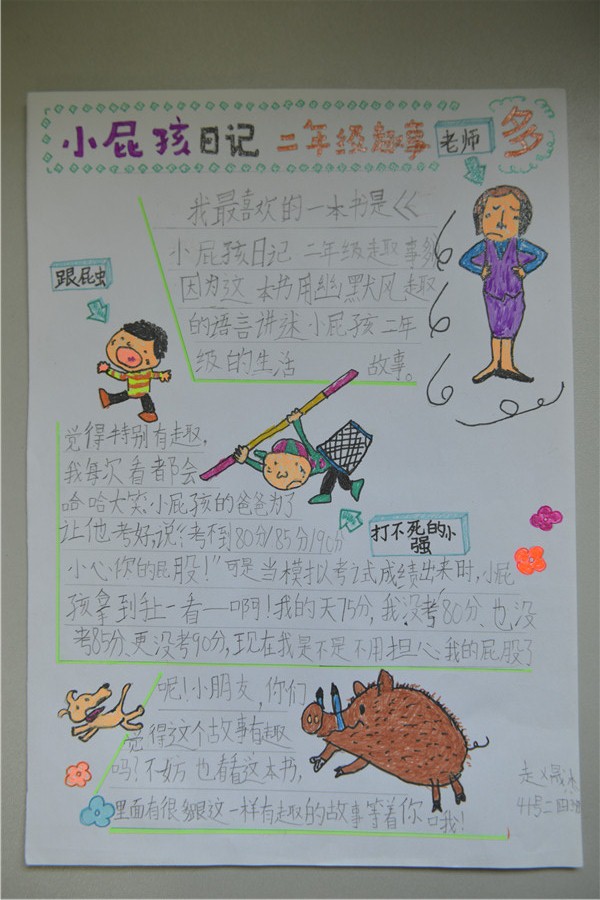 小屁孩日记 二年级趣事 多
老师
我最喜欢的一本书是《
小屁孩日记 二年级趣事多
因为这本书用幽默风趣
的语言讲述小屁孩二年
级的生活 故事。
跟屁虫
觉得特别有趣,
我每次看都会
哈哈大笑.小屁孩的爸爸为了
让他考好,说:“考不到80分/85分/90分
小心你的屁股!”可是当模拟考试成绩出来时,小屁
孩拿到手一看——啊!我的天75分,我没考80分、也没
考85分、更没考90分,现在我是不是不用担心我的屁股了
打不死的小
强
呢!小朋友,你们
觉得这个故事有趣
吗?不妨也看这本书,
里面有很多跟这一样有趣的故事等着你哦!
41号二四班